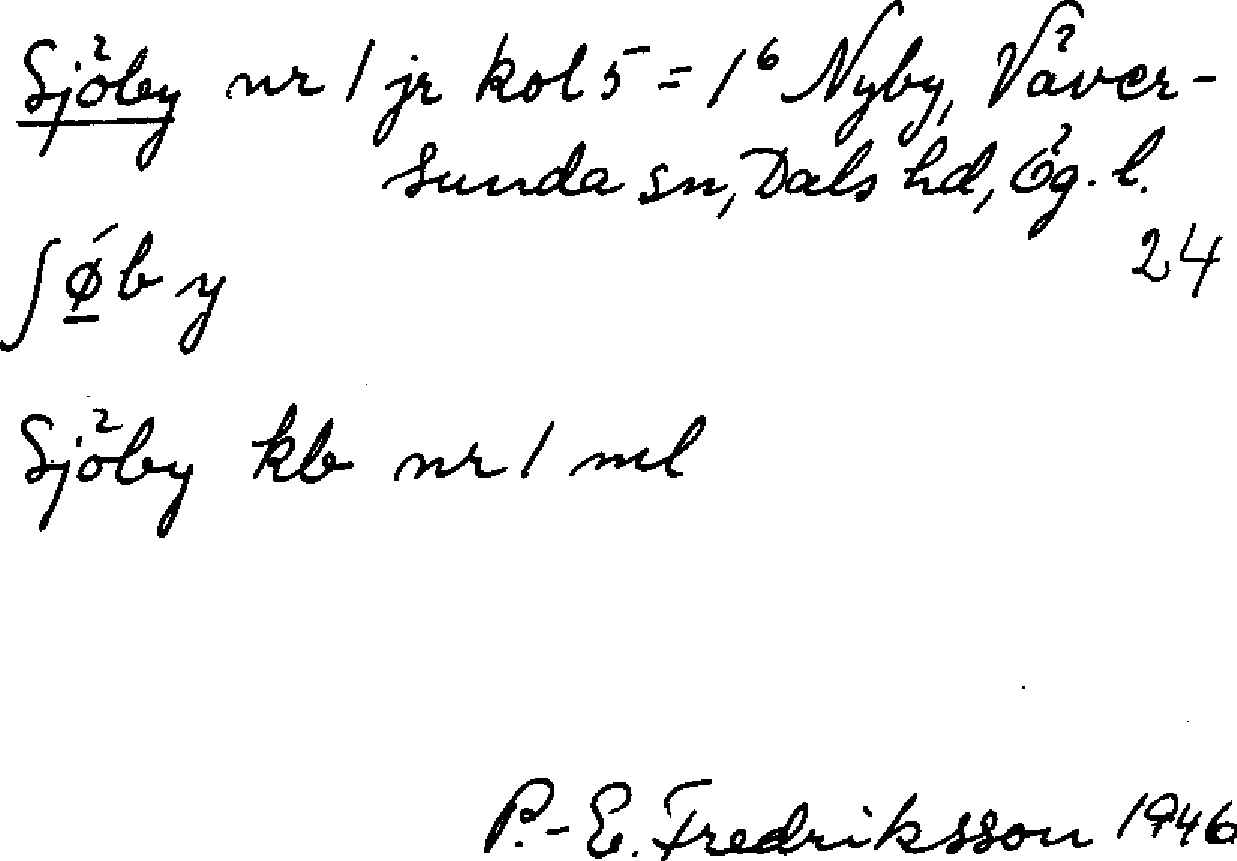 Sjöby nr 1 jr kol 5 = 1⁶ Nyby, Väver-
sunda sn, Dals hd, Ög. l.
24
ʃǿby
Sjöby kb nr 1 ml
P.-E. Fredriksson 1946